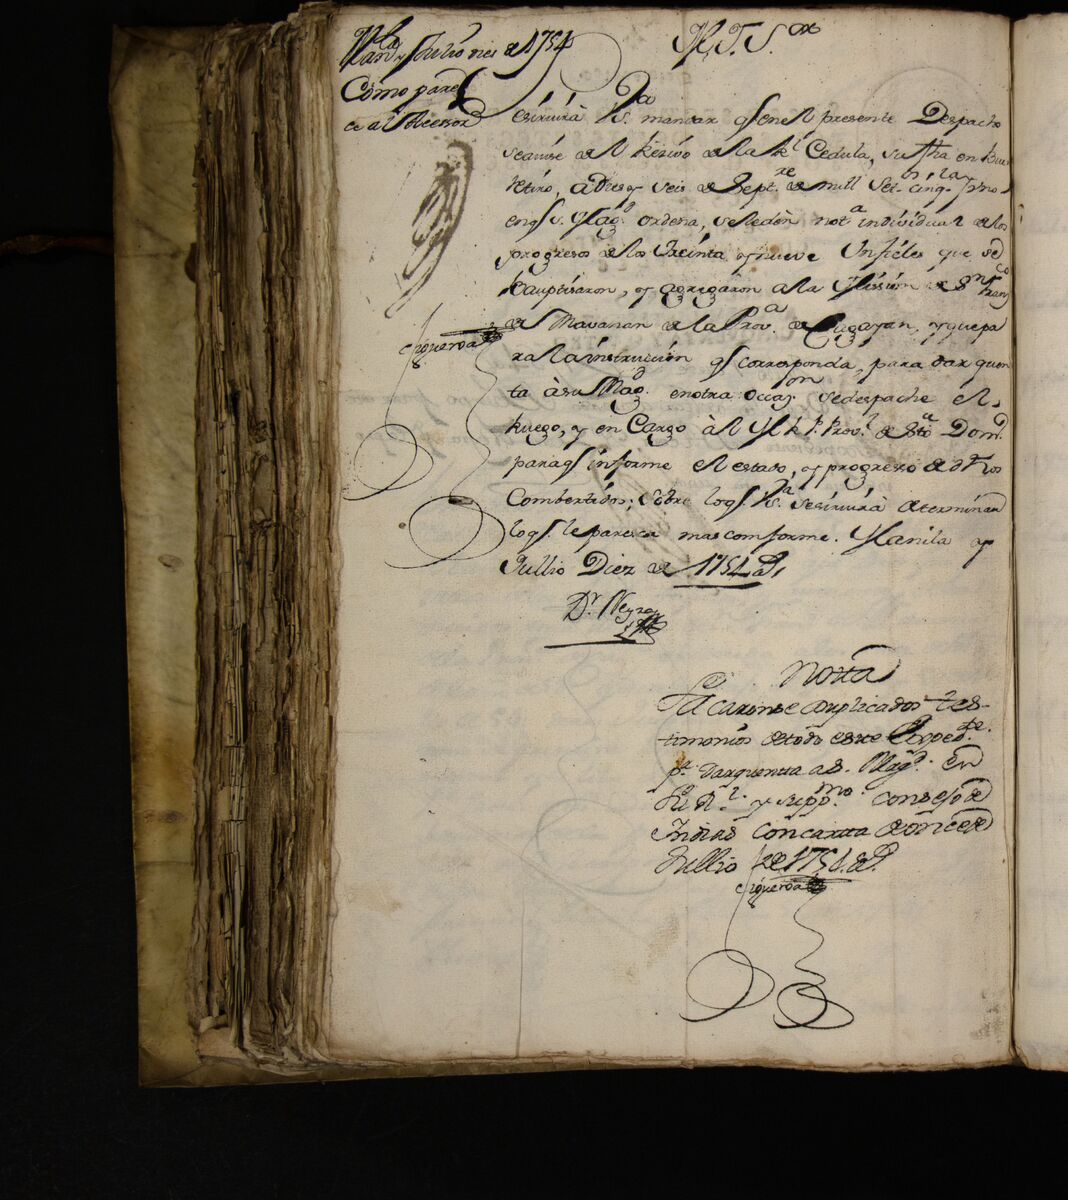 Man.la y Jullio diez de 1754
Como pare
ce al Assessor
Figueroa
M. I. S.or
V.S.a
se servirà mandar q.e en el presente Despacho
se acuse el Recivo de la R.l Cedula, su fha en Buen
Retiro, a Dies y seis de Sept.re de mill Set.s cinq.ta y uno
en q.e S. Mag.d ordena, se le dèn not.a individual de los
progresos de los treinta y nueve Infieles que se
bauptisaron, y agregaron a la Mission de S.n Fran.co
de Mavanan de la Prov.a de Cagayan, y que pa
ra la instruccion q.e corresponda, para dar quen
ta à su Mag.d en otra occas.on se despache el
Ruego, y en Cargo àl M. R. P. Prov.l de S.to Dom.o
para q.e informe el estado, y progreso de dhos
Combertidos; sobre lo q.e V.S.a se servirà determinar
lo q.e le paresca mas comforme. Manila y
Jullio Diez de 1754 a.s
D.r Neyra
Notta
Sacaronse duplicados tes-
timonios de todo este Exped.te
p.a dar quentta a S. Mag.d en
su R.l y supp.mo consejo de
Indias con cartta de onse de
Jullio de 1754 a.s
Figueroa